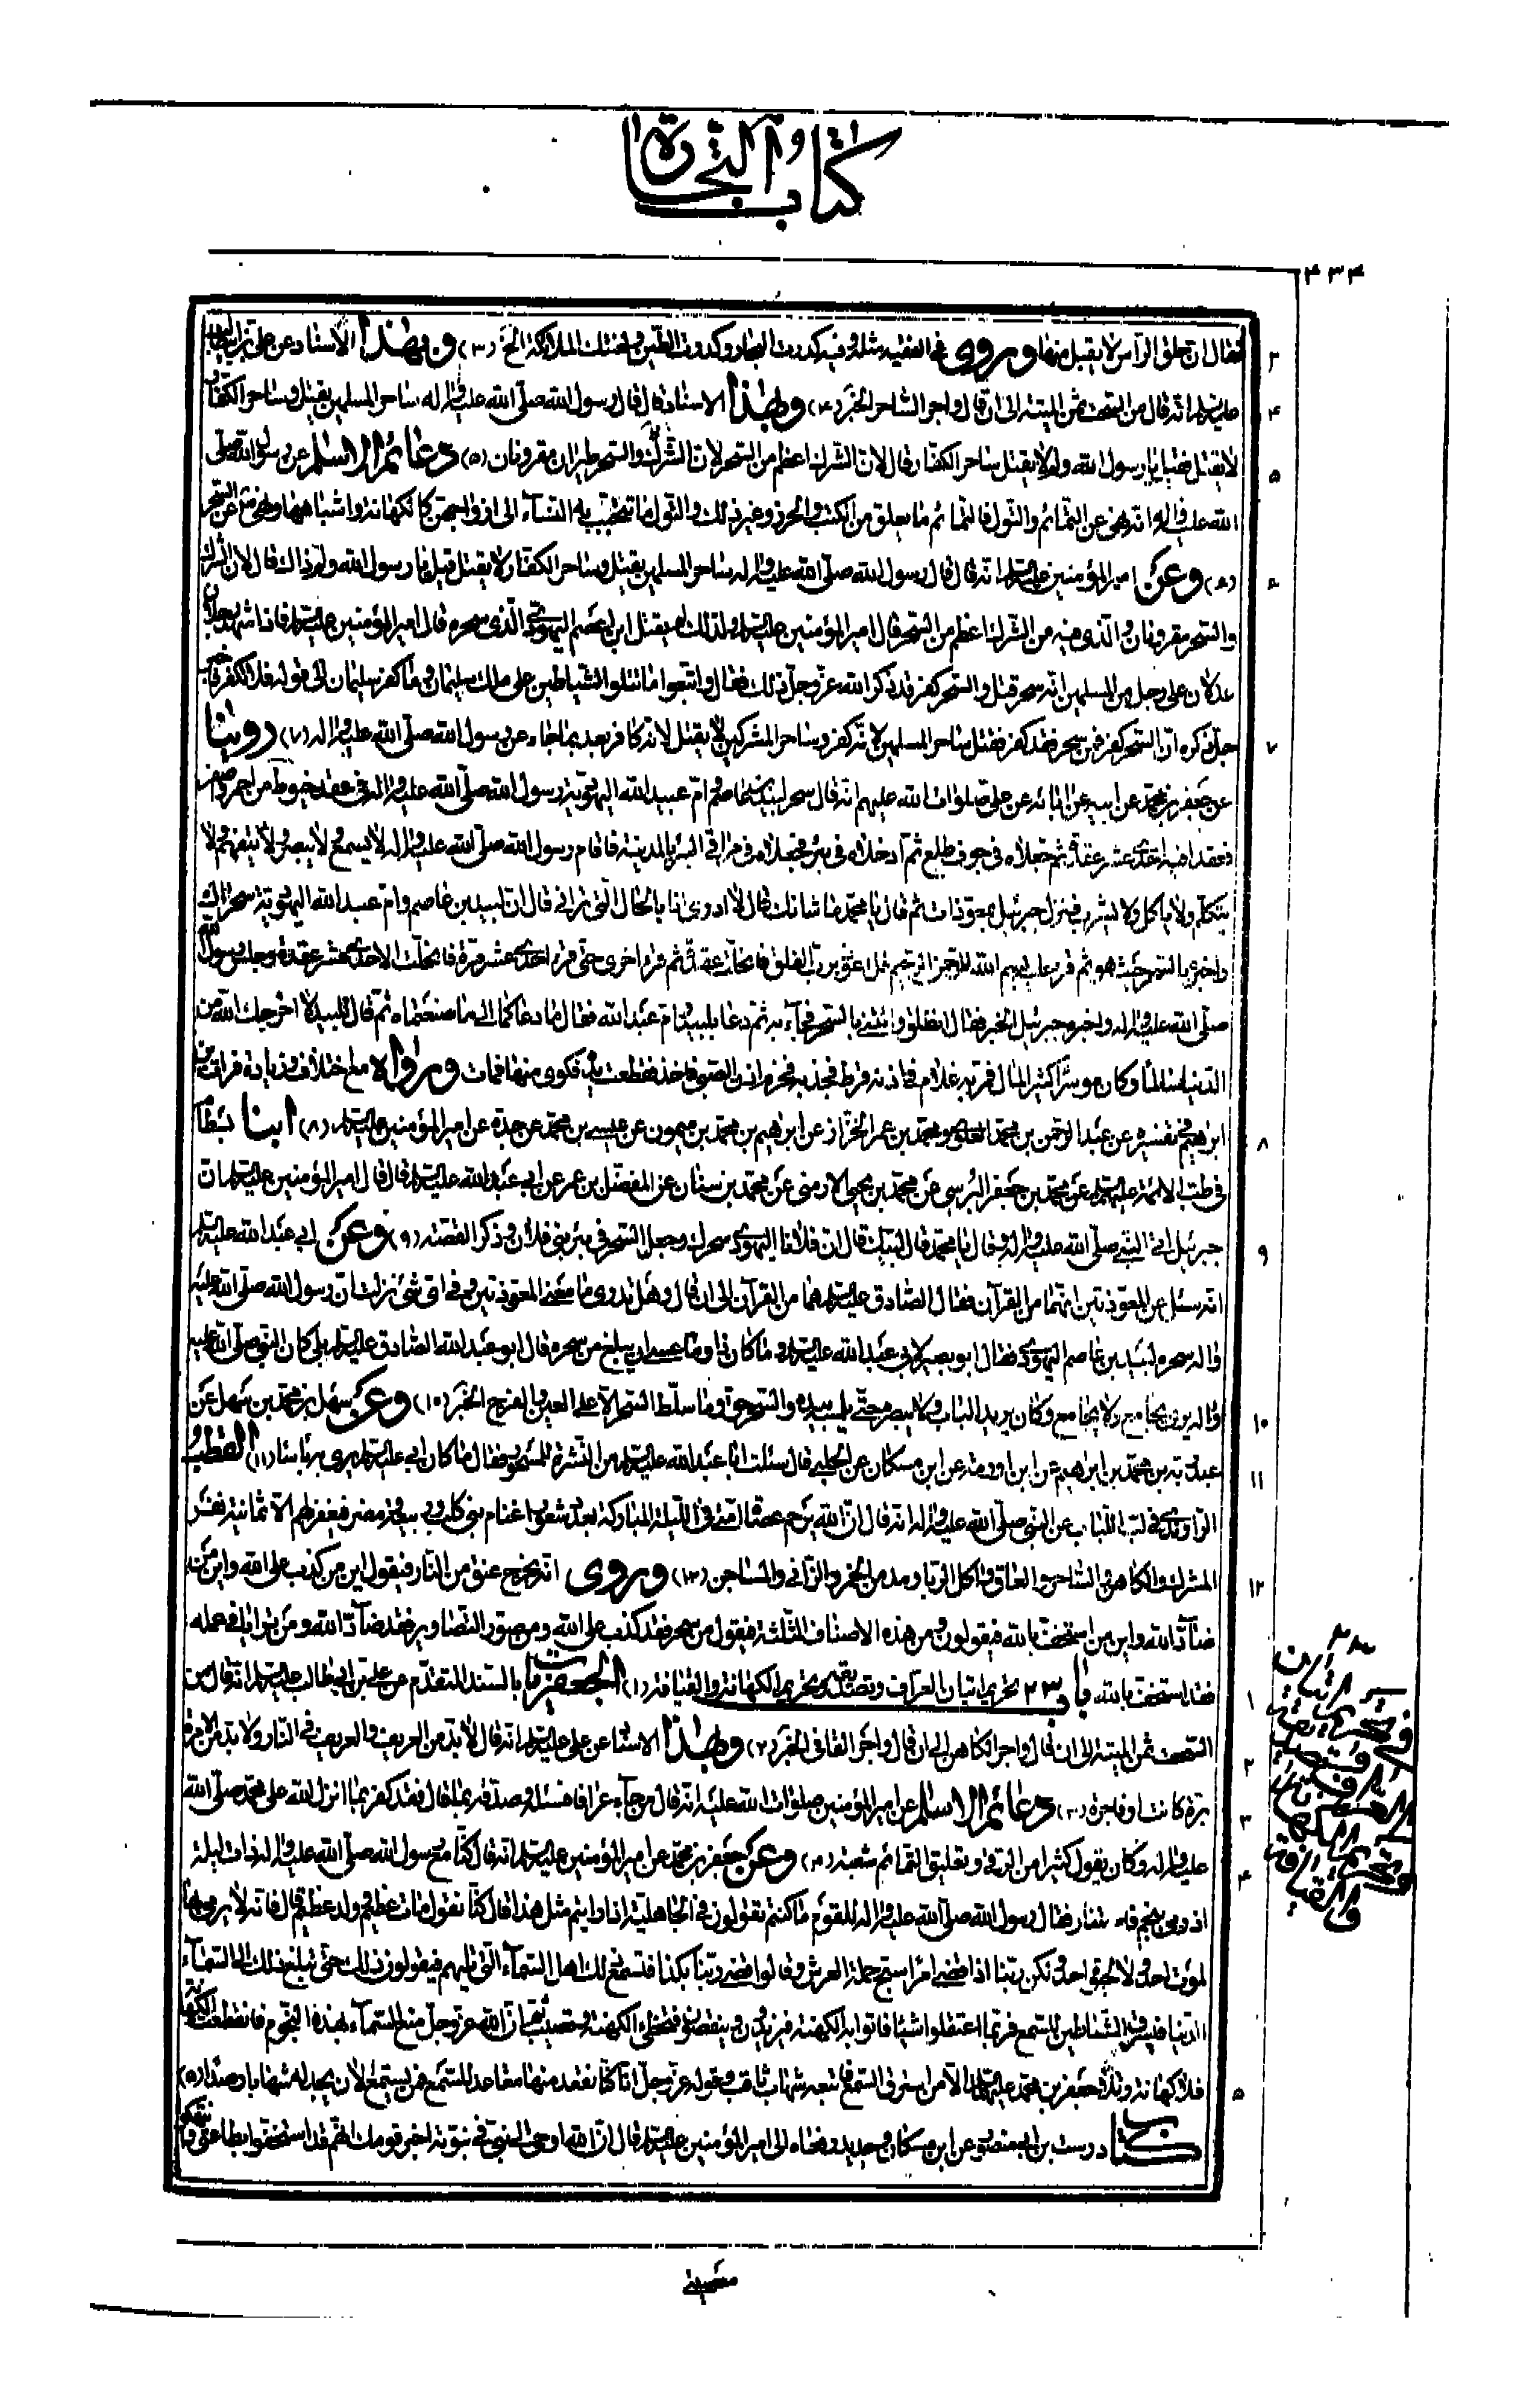 كتاب التجارة
۴۳۴
فقال ان حلق الرأس لا يقبل منها وروى فى الفقيه مثله وفيه كدورت البحار وكدورت الطين ولعنتك الملائكة الخ (۳) وبهذا الاسناد عن على بن ابيطالب
عليه السلم انه قال من السحت ثمن الميتة الى ان قال واجر الساحر الخبر (۴) وبهذا الاسناد قال قال رسول الله صلى الله عليه واله ساحر المسلمين يقتل وساحر الكفار
لا يقتل فقيل يا رسول الله ولم لا يقتل ساحر الكفار فقال لان الشرك اعظم من السحر لان الشرك والسحر مقرونان (۵) دعائم الاسلام عن رسول الله صلى
الله عليه واله انه نهى عن التمائم والتول فالتمائم ما يعلق من الكتب والخرز وغير ذلك والتول ما تتحبب به النساء الى ازواجهن كالكهانة واشباهها ونهى عن السحر
(۶) وعن امير المؤمنين عليه السلم انه قال قال رسول الله صلى الله عليه واله ساحر المسلمين يقتل وساحر الكفار لا يقتل قيل يا رسول الله ولم ذاك قال لان الشرك
والسحر مقرونان والذى فيه من الشرك اعظم من السحر قال امير المؤمنين عليه السلم ولذلك لم يقتل ابن اعصم اليهودى الذى سحره قال امير المؤمنين عليه السلم فاذا شهد رجلان
عدلان على رجل من المسلمين انه سحر قتل والسحر كفر قد ذكر الله عز وجل ذلك فقال واتبعوا ما تتلو الشياطين على ملك سليمان وما كفر سليمان الى قوله فلا تكفر فاخبر
جل ذكره ان السحر كفر فمن سحر فقد كفر فقتل ساحر المسلمين لانه كفر وساحر المشركين لا يقتل لانه كافر بعد كما جاء عن رسول الله صلى الله عليه واله (۷) روينا
عن جعفر بن محمد عن ابيه عن ابائه عن على صلوات الله عليهم انه قال سحر لبيد بن عاصم وام عبد الله اليهودية رسول الله صلى الله عليه واله فى عقد خيوط من احمر واصفر
فعقدا فيه احدى عشر عقدة ثم جعلاه فى جوف طلع ثم ادخلاه فى بئر فجعلاه فى مراقى البئر بالمدينة فاقام رسول الله صلى الله عليه واله لا يسمع ولا يبصر ولا يفهم ولا
يتكلم ولا ياكل ولا يشرب فنزل جبرئيل بمعوذات ثم قال يا محمد ما شانك فقال لا ادرى انا بالحال التى ترانى قال ان لبيد بن عاصم وام عبد الله اليهودية سحراك
واخبره بالسحر حيث هو ثم قرء عليه بسم الله الرحمن الرحيم قل اعوذ برب الفلق فانحلت عقدة ثم قرء اخرى حتى قرء احدى عشر مرة فانحلت الاحدى عشر عقدة وجلس رسول الله
صلى الله عليه واله واخبره جبرئيل الخبر فقال انطلق وائتنى بالسحر فجاء به ثم دعا بلبيد وام عبد الله فقال ما دعاكما الى ما صنعتماه ثم قال للبيد لا اخرجك الله من
الدنيا سالما وكان موسرا كثير المال فمر به غلام فى اذنه قرط فجذبه فخرم اذن الصبى فاخذ فقطعت يده فكوى منها فمات ورواه مع اختلاف وزيادة فرات بن
ابراهيم فى تفسيره عن عبد الرحمن بن محمد العلوى ومحمد بن عمر الخزاز عن ابراهيم بن محمد بن ميمون عن عيسى بن محمد عن جده عن امير المؤمنين عليه السلم (۸) ابنا بسطام
فى طب الائمة عليهم السلم عن محمد بن جعفر البرسى عن محمد بن يحيى الارمنى عن محمد بن سنان عن المفضل بن عمر عن ابى عبد الله عليه السلم قال قال امير المؤمنين عليه السلم ان
جبرئيل اتى النبى صلى الله عليه واله وقال يا محمد قال لبيك قال ان فلانا اليهودى سحرك وجعل السحر فى بئر بنى فلان وذكر القصة (۹) وعن ابى عبد الله عليه السلم
انه سئل عن المعوذتين انهما من القرآن فقال الصادق عليه السلم هما من القرآن الى ان قال وهل تدرى ما معنى المعوذتين وفى اى شئ نزلت ان رسول الله صلى الله عليه
واله سحره لبيد بن عاصم اليهودى فقال ابو بصير لابى عبد الله عليه السلم وما كان ذا وما عسى ان يبلغ من سحره قال ابو عبد الله الصادق عليه السلم بلى كان النبى صلى الله عليه
واله يرى يجامع ولا يجامع وكان يريد الباب ولا يبصره حتى يلمسه بيده والسحر حق وما سلط السحر الا على العين والفرج الخبر (۱۰) وعن سهل بن محمد بن سهل عن
عبد ربه بن محمد بن ابراهيم عن ابن اورمة عن ابن مسكان عن الحلبى قال سئلت ابا عبد الله عليه السلم عن النشرة للمسحور فقال ما كان ابى عليه السلم يرى بها باسا (۱۱) القطب
الراوندى فى لب اللباب عن النبى صلى الله عليه واله انه قال ان الله يرحم عصاة امتى فى الليلة المباركة بعدد شعور اغنام بنى كلاب وربيعة ومضر فيغفر لهم الا ثمانية نفر
المشرك والكاهن والساحر والعاق واكل الربا ومدمن الخمر والزانى والماجن (۱۲) وروى انه يخرج عنق من النار فيقول اين من كذب على الله واين من
ضاد الله واين من استخف بالله فيقولون ومن هذه الاصناف الثلثة فيقول من سحر فقد كذب على الله ومن صور التصاوير فقد ضاد الله ومن ترائى فى عمله
فقد استخف بالله باب ۲۳ تحريم اتيان العراف وتصديقه وتحريم الكهانة والقيافة (۱) الجعفريات بالسند المتقدم عن على بن ابيطالب عليه السلم انه قال من
السحت ثمن الميتة الى ان قال واجر الكاهن الى ان قال واجر القافى الخبر (۲) وبهذا الاسناد عن على عليه السلم انه قال لا بد من العريف والعريف فى النار ولا بد من الامرة
برة كانت او فاجرة (۳) دعائم الاسلام عن امير المؤمنين صلوات الله عليه انه قال من جاء عرافا فسئله وصدقه بما قال فقد كفر بما انزل الله على محمد صلى الله
عليه واله وكان يقول كثير من الرقى وتعليق التمائم شعبة (۴) وعن جعفر بن محمد عن امير المؤمنين عليه السلم انه قال كنا مع رسول الله صلى الله عليه واله ذات ليلة
اذ رمى بنجم فاستنار فقال رسول الله صلى الله عليه واله للقوم ما كنتم تقولون فى الجاهلية اذا رايتم مثل هذا قال كنا نقول مات عظيم وولد عظيم قال فانه لا يرمى بها
لموت احد ولا لحيوة احد ولكن ربنا اذا قضى امرا سبح حملة العرش وقالوا قضى ربنا بكذا فتسمع ذلك اهل السماء التى تليهم فيقولون ذلك حتى تبلغ ذلك الى السماء
الدنيا فيسترق الشياطين السمع فربما اعتقلوا شيئا فاتوا به الكهنة فيزيدون وينقصون فتخطى الكهنة وتصيب ثم ان الله عز وجل منع السماء بهذه النجوم فانقطعت الكهانة
فلا كهانة وتلا جعفر بن محمد عليهما السلم الا من استرق السمع فاتبعه شهاب ثاقب وقوله عز وجل انا كنا نقعد منها مقاعد للسمع فمن يستمع الان يجد له شهابا رصدا (۵)
كتاب درست بن ابى منصور عن ابن مسكان وحديد رفعاه الى امير المؤمنين عليه السلم قال ان الله اوحى الى نبى فى نبوته اخبر قومك انهم قد استخفوا بطاعتى وانتهكوا